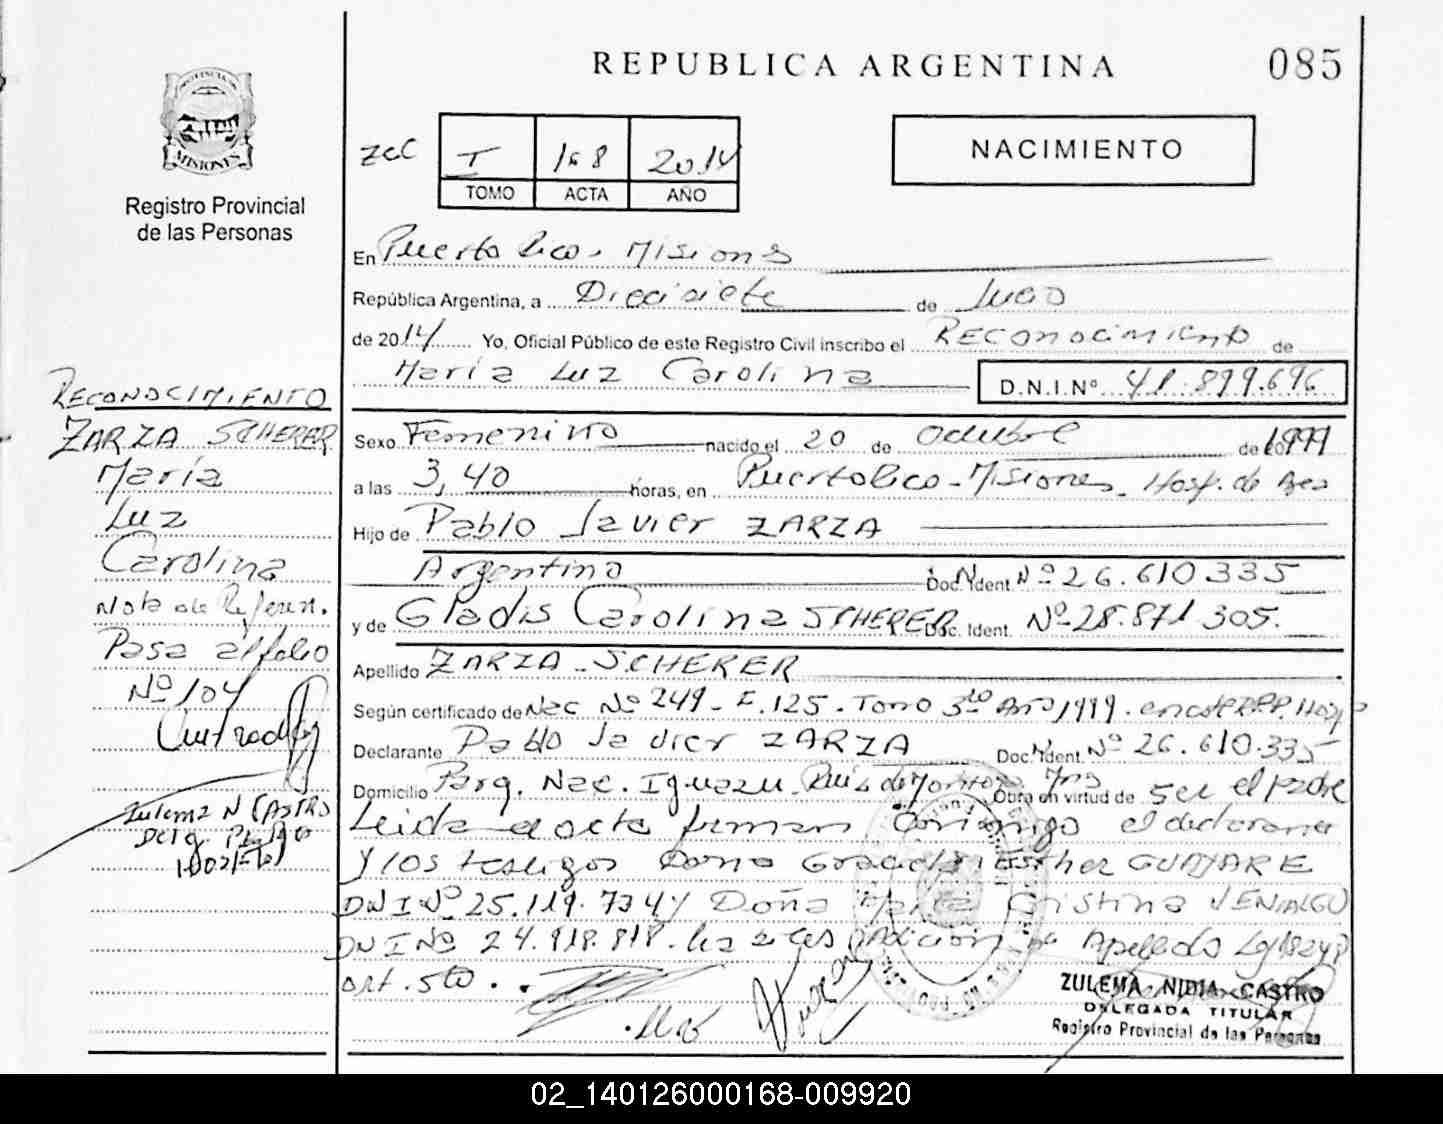 REPUBLICA ARGENTINA
085
PROVINCIA DE
MISIONES
Registro Provincial
de las Personas
I 168 2014
TOMO ACTA AÑO
NACIMIENTO
En Puerto Rico - Misiones
República Argentina, a Diecisiete de Junio
de 2014 Yo, Oficial Público de este Registro Civil inscribo el Reconocimiento de
María Luz Carolina D.N.I.Nº 41.899.696
Sexo Femenino nacido el 20 de Octubre de 1999
a las 3,40 horas, en Puerto Rico - Misiones - Hosp. de
Hijo de Pablo Javier ZARZA
Argentino Doc. Ident. Nº 26.610.335
y de Gladis Carolina SCHERER Doc. Ident. Nº 28.871.305.
Apellido ZARZA - SCHERER
Según certificado de Nac Nº 249 - F.125 - Tomo 3º Año 1999.
Declarante Pablo Javier ZARZA Doc. Ident. Nº 26.610.335
Domicilio Parq. Nac. Iguazu Obra en virtud de ser el padre
Leida el acta firman conmigo el declarante
y los testigos Doña GUAYARE
DNI Nº 25.119.734 y Doña Cristina
DNI Nº 24.918.818. Apellido
art. 5to.
ZULEMA NIDIA CASTRO
DELEGADA TITULAR
Registro Provincial de las Personas
RECONOCIMIENTO
ZARZA SCHERER
María
Luz
Carolina
Nota de Referen.
Pasa al folio
Nº 104
Zulema N CASTRO
02_140126000168-009920